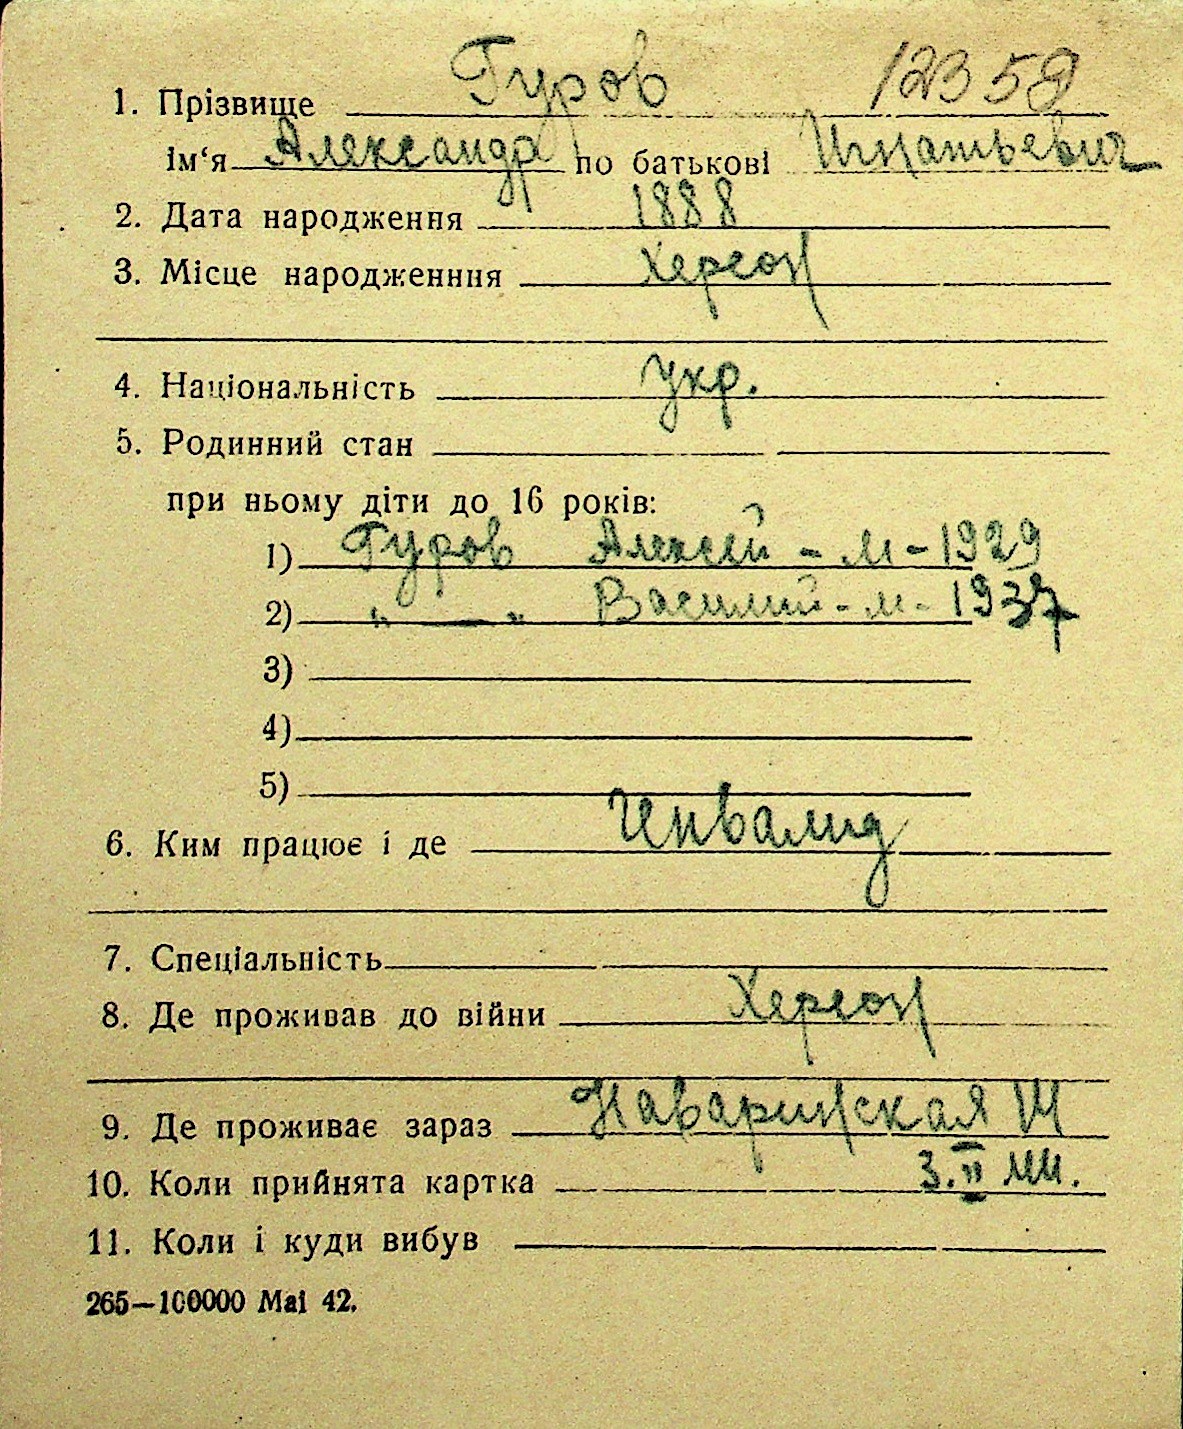 1. Прізвище Гуров 12358
ім‘я Александр по батькові Игнатьевич
2. Дата народження 1888
3. Місце народженння Херсон
4. Національність укр.
5. Родинний стан
при ньому діти до 16 років:
1) Гуров Алексей - м - 1929
2) " — " Василий - м - 1937
3)
4)
5)
6. Ким працює і де Инвалид
7. Спеціальність
8. Де проживав до війни Херсон
9. Де проживає зараз Наваринская
10. Коли прийнята картка 3. II
11. Коли і куди вибув
265—100000 Mai 42.